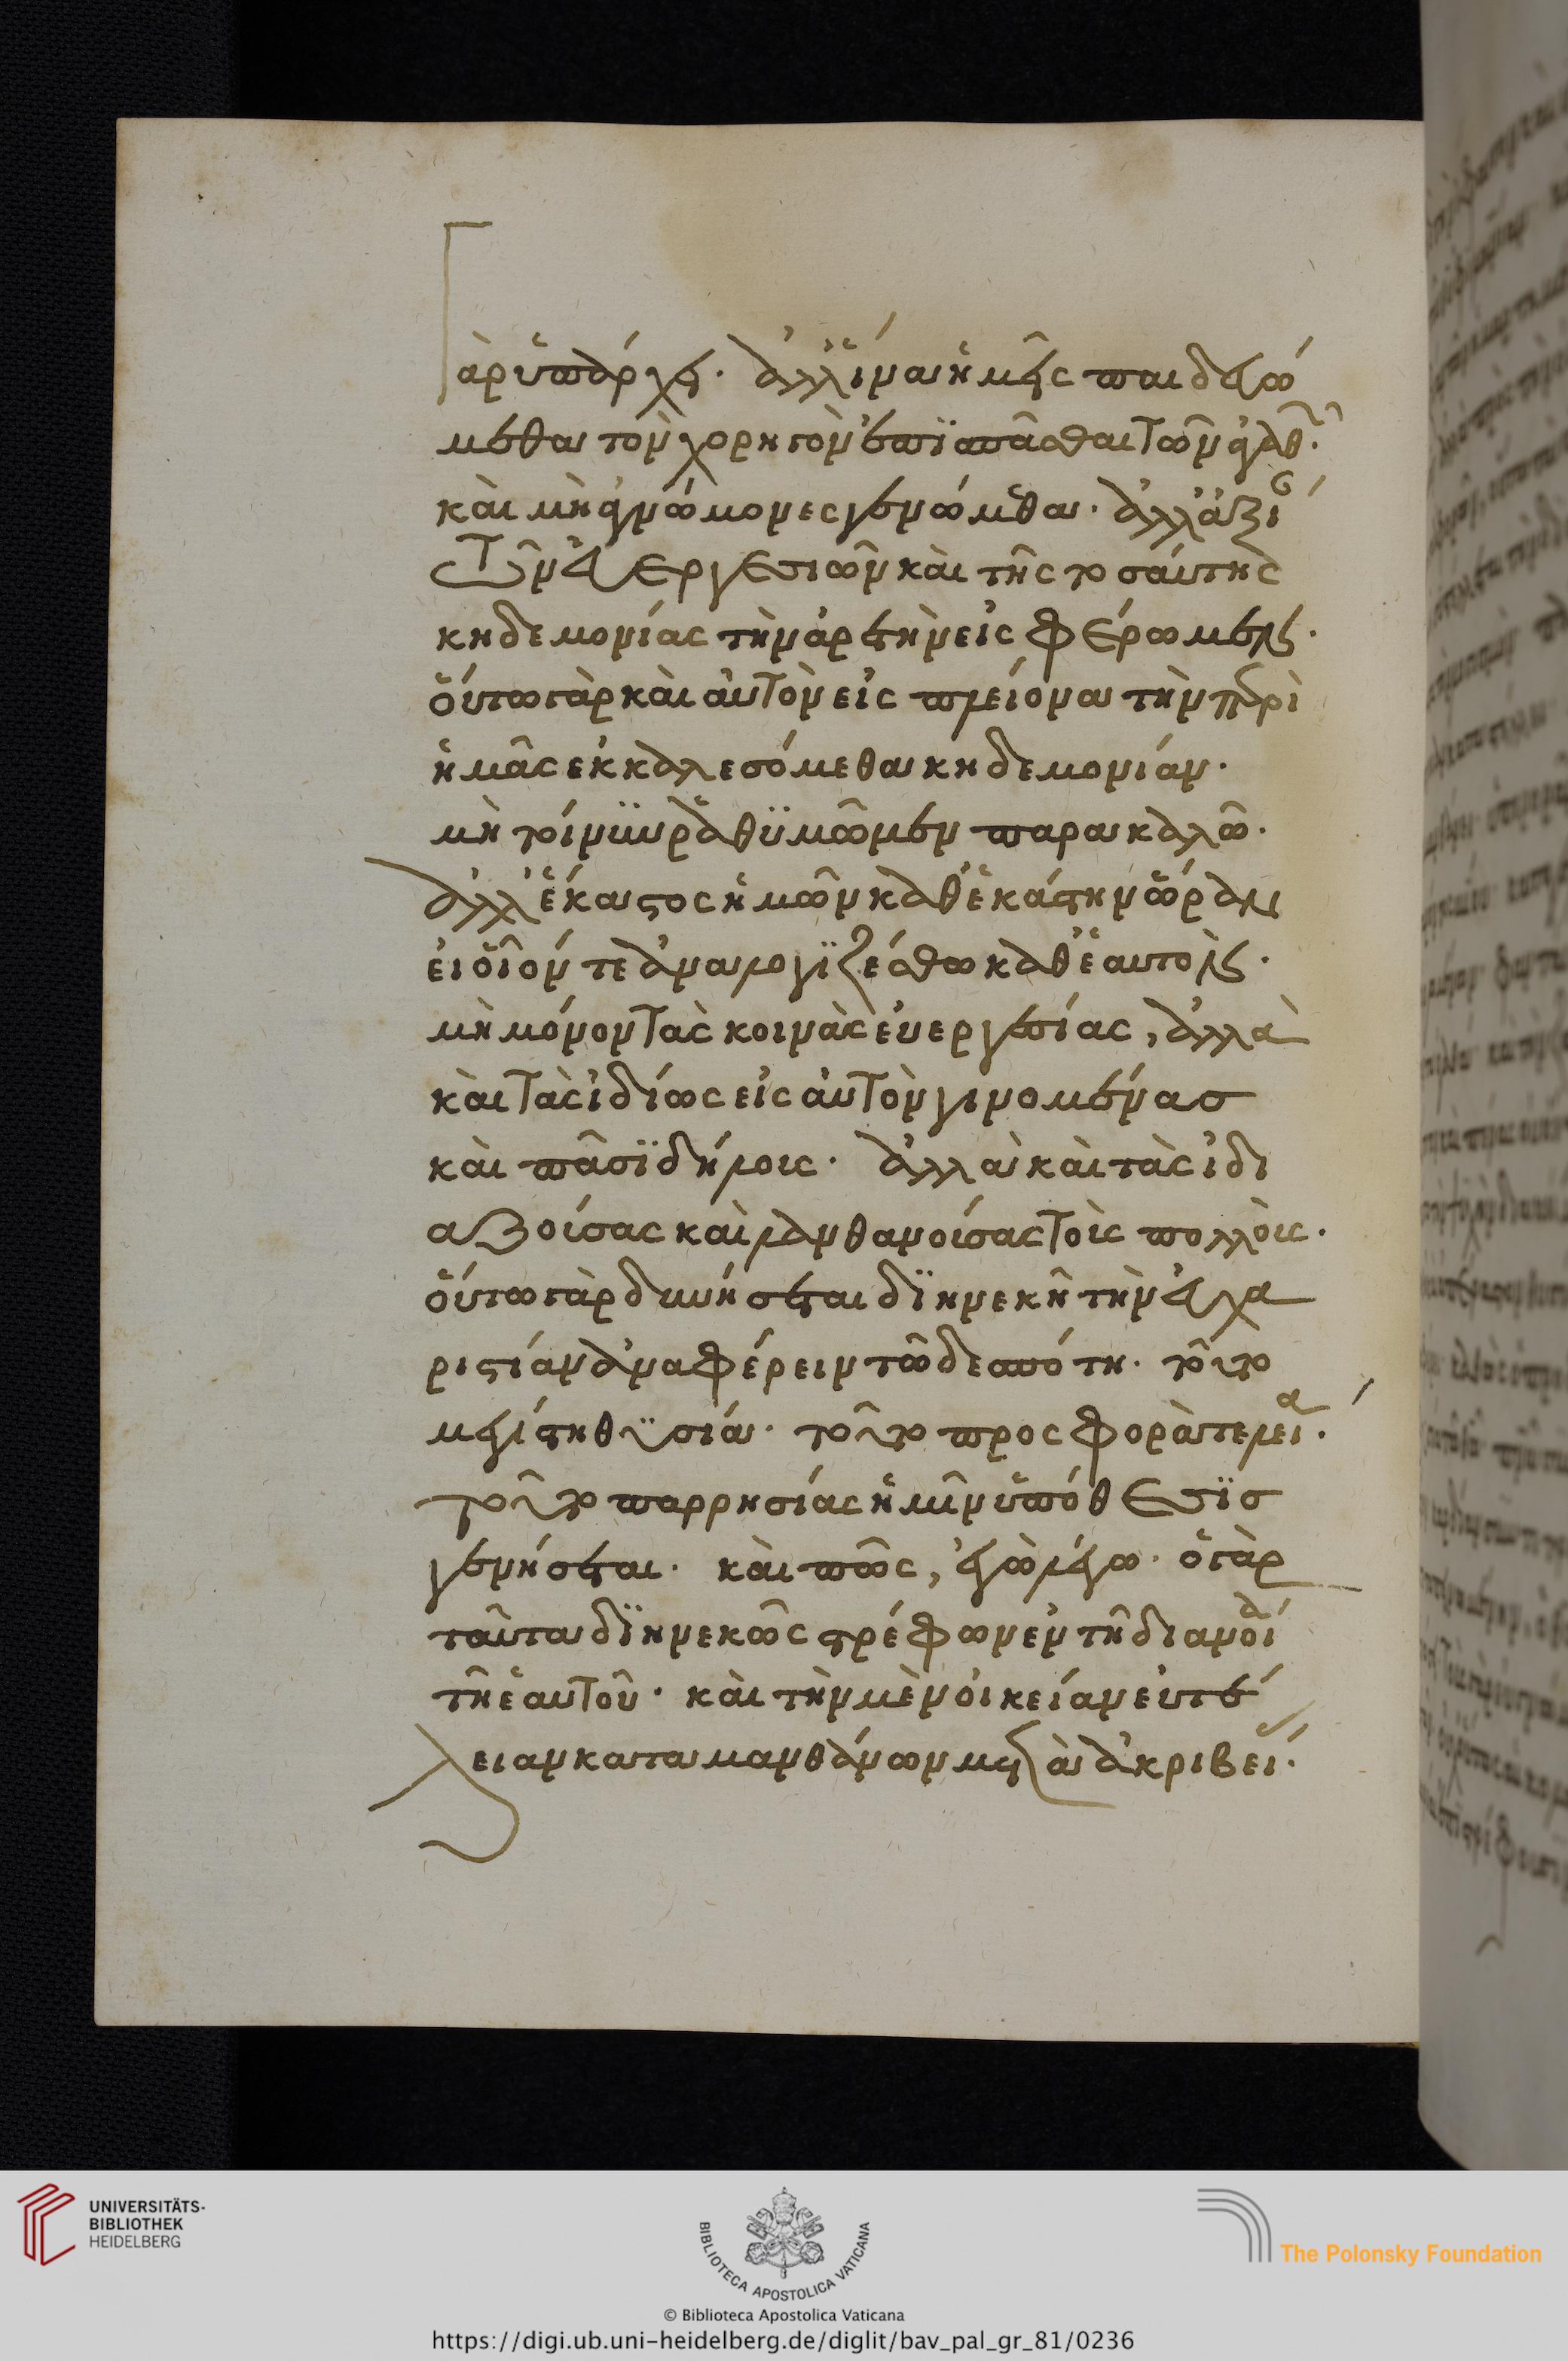 γὰρ ὑπάρχει. ἀλλ' ἵνα ἡμεῖς παιδευώ
μεθα τὸν χορηγὸν ἐπισπᾶσθαι τῶν ἀγαθῶν.
καὶ μὴ ἀγνώμονες γενώμεθα. ἀλλ' ἀξίαν
τῶν εὐεργεσιῶν καὶ τῆς τοσαύτης
κηδεμονίας τὴν ἀρετὴν εἰσφέρωμεν.
οὕτω γὰρ καὶ αὐτὸν εἰς πλείονα τὴν περὶ
ἡμᾶς ἐκκαλεσόμεθα κηδεμονίαν.
μὴ τοίνυν ῥαθυμῶμεν παρακαλῶ.
ἀλλ' ἕκαστος ἡμῶν καθ' ἑκάστην ὥραν
εἰ οἷόν τε ἀναλογιζέσθω καθ' ἑαυτὸν.
μὴ μόνον τὰς κοινὰς εὐεργεσίας, ἀλλὰ
καὶ τὰς ἰδίως εἰς αὐτὸν γινομένας
καὶ πᾶσι δήλοις. ἀλλὰ καὶ τὰς ἰδι
αζούσας καὶ λανθανούσας τοῖς πολλοῖς.
οὕτω γὰρ δυνήσεται διηνεκῆ τὴν εὐχα
ριστίαν ἀναφέρειν τῶ δεσπότη. τοῦτο
μεγίστη θυσία. τοῦτο προσφορὰ τελεία.
τοῦτο παρρησίας ἡμῖν ὑπόθεσις
γενήσεται. καὶ πῶς, ἐγὼ λέγω. ὁ γὰρ
ταῦτα διηνεκῶς στρέφων ἐν τῆ διανοία
τῆ ἑαυτοῦ. καὶ τὴν μὲν οἰκείαν εὐτέ
λειαν καταμανθάνων μετὰ ἀκριβείας.
UNIVERSITÄTS-
BIBLIOTHEK
HEIDELBERG
BIBLIOTECA APOSTOLICA VATICANA
The Polonsky Foundation
© Biblioteca Apostolica Vaticana
https://digi.ub.uni-heidelberg.de/diglit/bav_pal_gr_81/0236